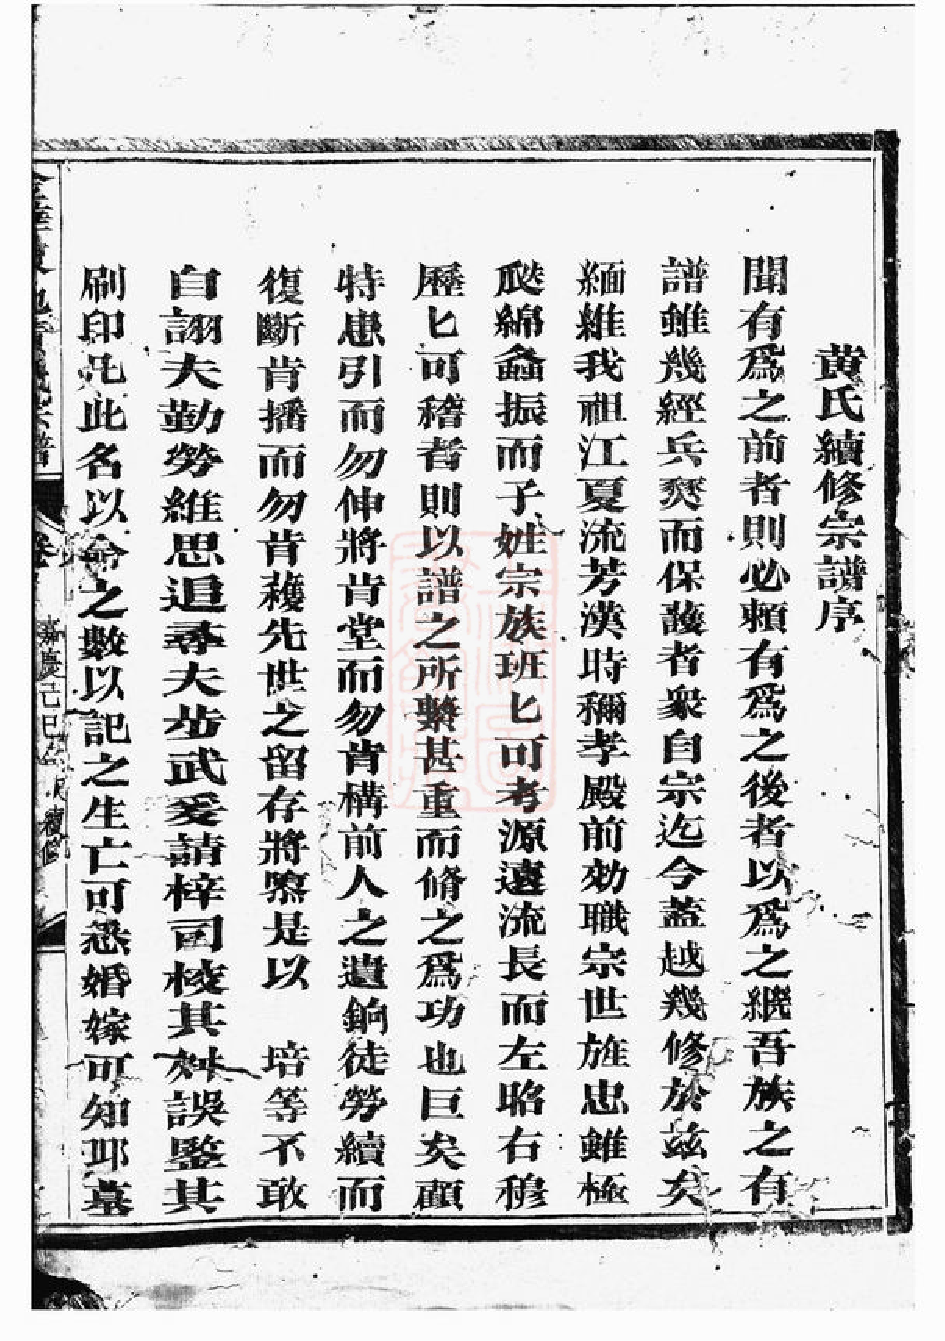 黃氏續修宗譜序
聞有爲之前者則必賴有爲之後者以爲之繼吾族之有
譜雖幾經兵燹而保護者衆自宗迄今蓋越幾修於茲矣
緬維我祖江夏流芳漢時稱孝殿前効職宗世旌忠雖極
瓞綿螽振而子姓宗族班匕可考源遠流長而左昭右穆
歷匕可稽者則以譜之所繫甚重而脩之爲功也巨矣顧
特患引而勿伸將肯堂而勿肯構前人之遺餉徒勞續而
復斷肯播而勿肯穫先世之留存將隳是以 培等不敢
自詡夫勤勞維思追尋夫步武爰請梓司校其舛誤鑒其
刷印凡此名以命之數以記之生亡可悉婚嫁可知邱墓
嘉慶己巳年 續修